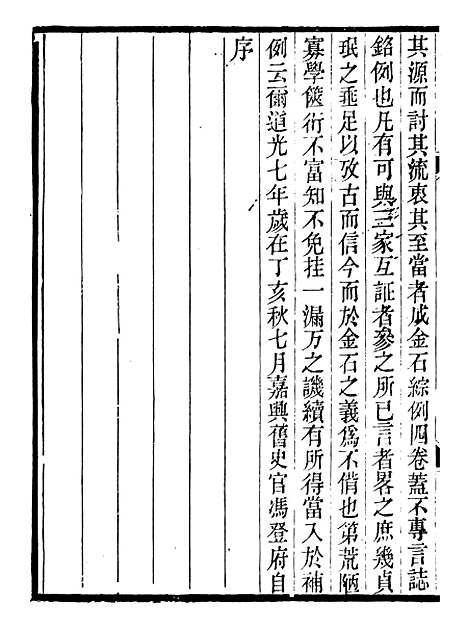 其源而討其流衷其至當者成金石綜例四卷蓋不專言誌
銘例也凡有可與三家互証者參之所已言者畧之庶幾貞
珉之垂足以攷古而信今而於金石之義爲不偝也第荒陋
寡學篋衍不富知不免挂一漏万之譏續有所得當入於補
例云爾道光七年歲在丁亥秋七月嘉興舊史官馮登府自
序